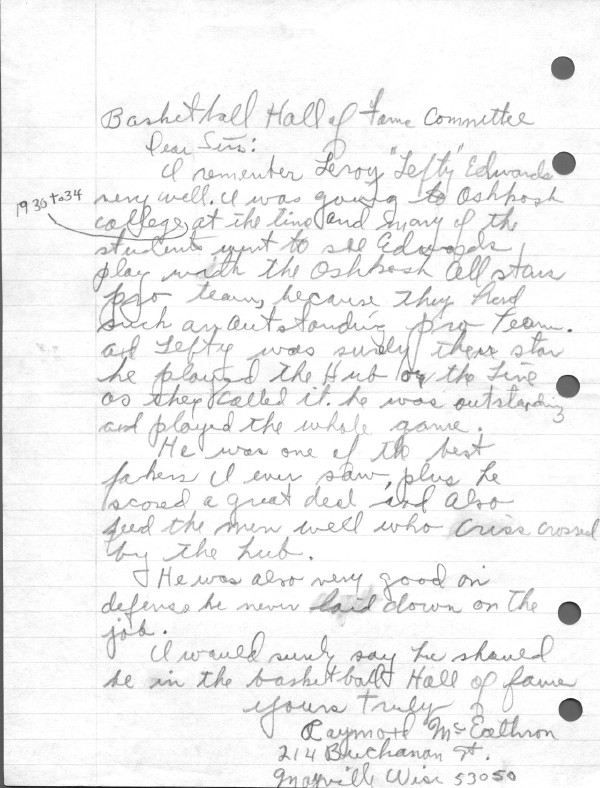 Basketball Hall of Fame Committee
Dear Sirs:
I remember Leroy "Lefty" Edwards
very well. I was going to Oshkosh
1930 to 34
college, at the time and many of the
students went to see Edwards
play with the Oshkosh All stars
pro team, because they had
such an outstanding pro team.
and Lefty was surely there star
he played the Hub or the Line
as they called it. he was outstanding
and played the whole game.
He was one of the best
fakers I ever saw, plus he
scored a great deal and also
feed the men well who criss crossed
by the hub.
He was also very good on
defense he never laid down on the
job.
I would surely say he should
be in the basketball Hall of fame
yours truly
Raymond McEathron
214 Buchanan St.
Mayville Wisc 53050